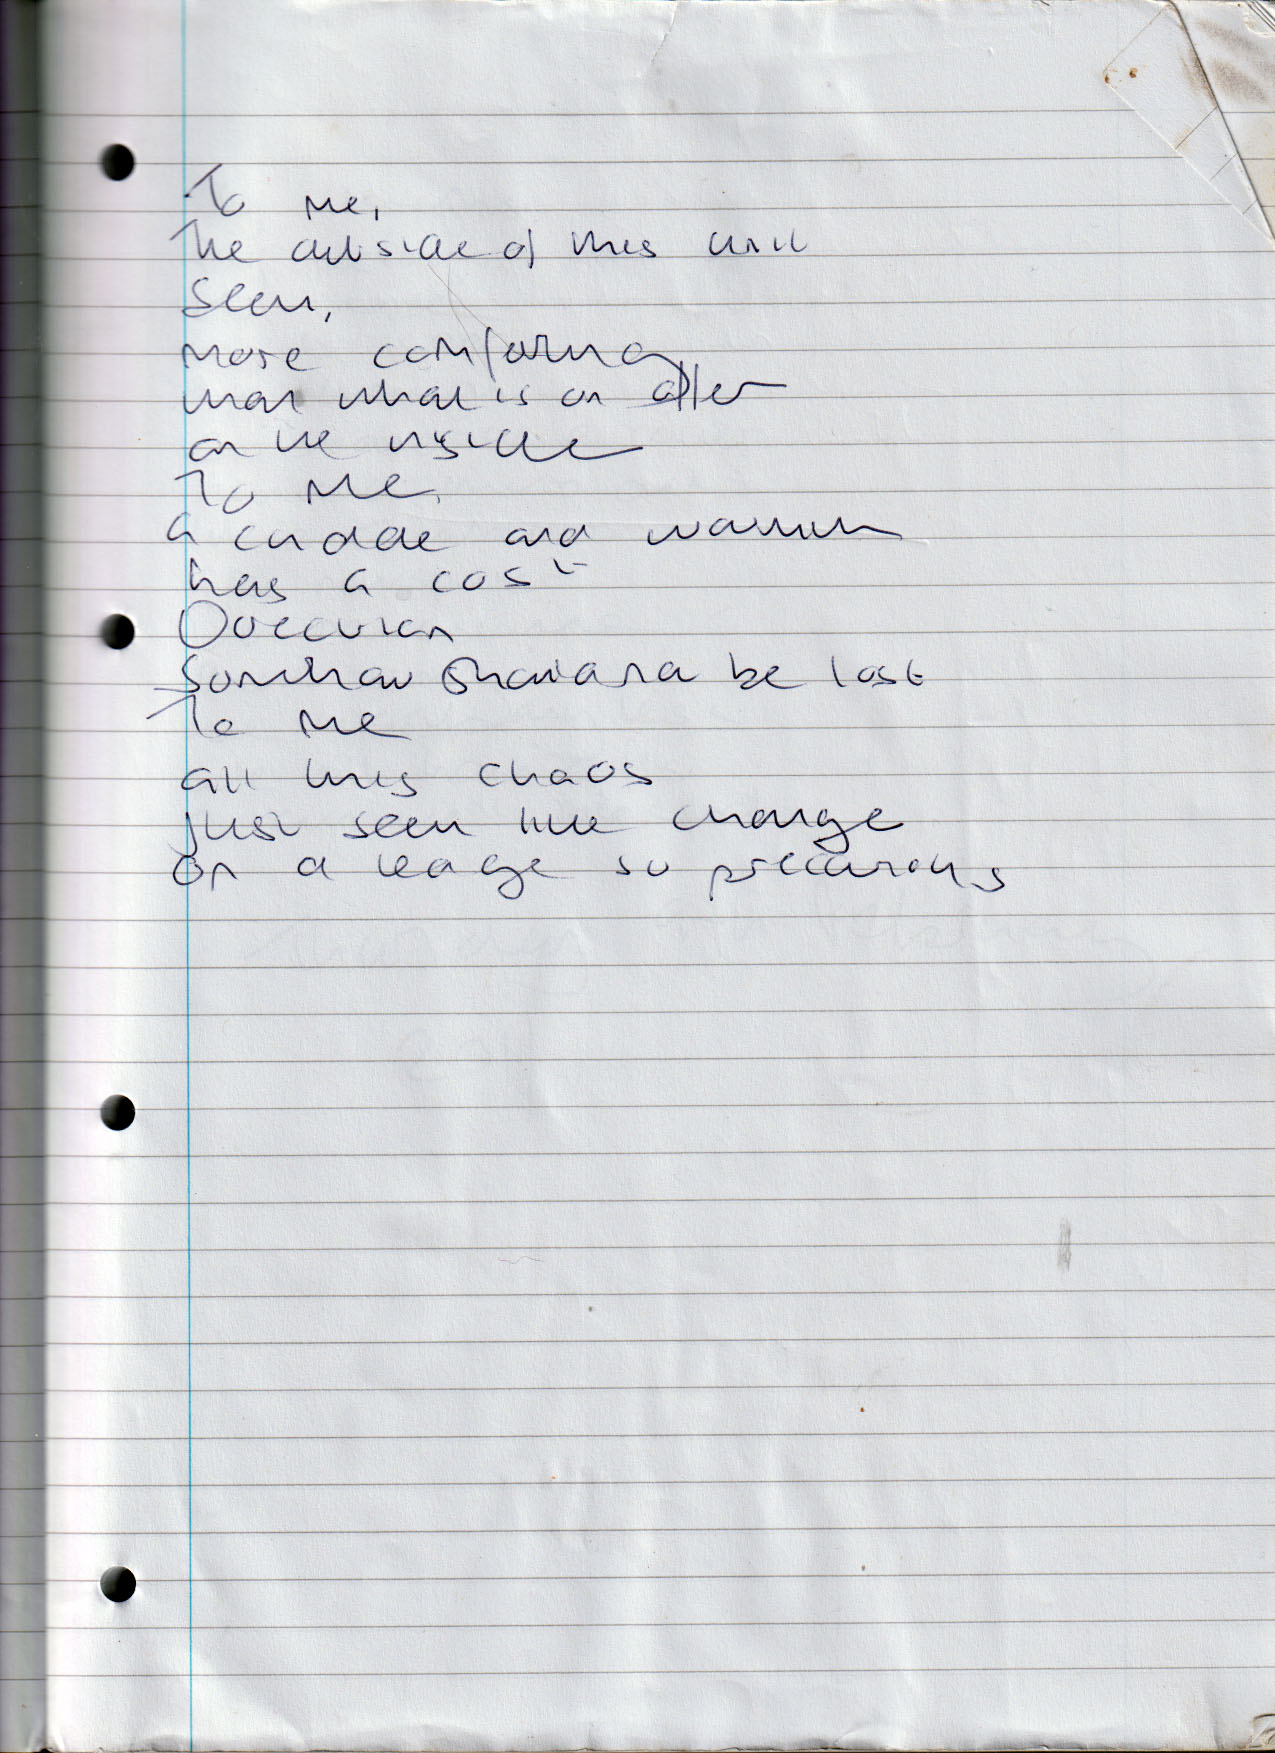 To me,
The outside of this unit
seem,
more comforting
than what is on offer
on the inside
To me,
a cuddle and warmth
has a cost
Direction
somehow gonna be lost
To me
all this chaos
just seem like change
on a ledge so precarious